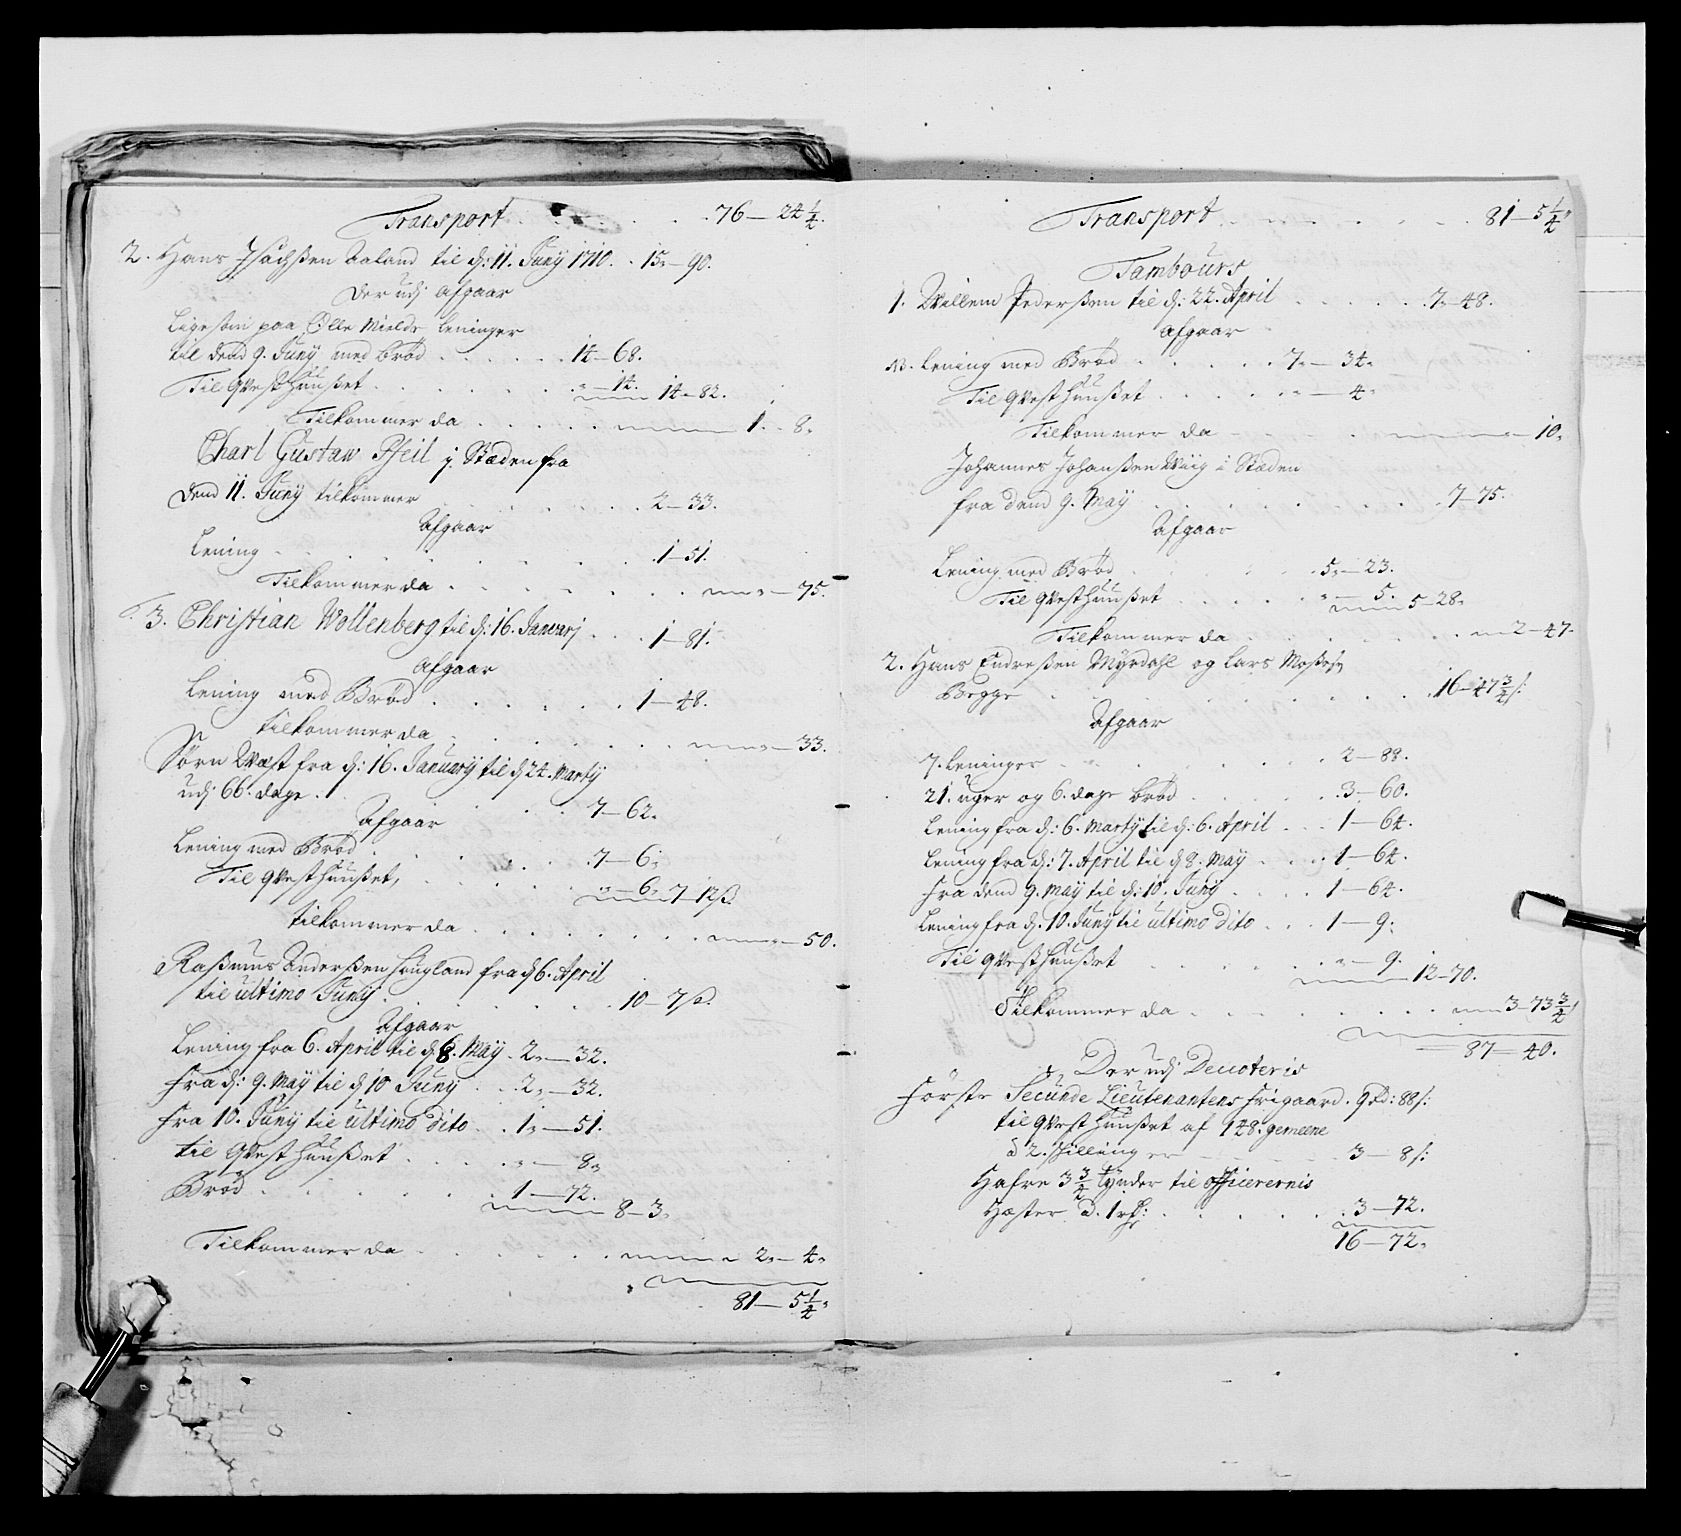 Transport . . . . . 76 — 24 1/2.
2. Hans Isachsen Aaland til d: 11. Juny 1710. . 15 — 90.
Der udj Afgaar
Ligesom paa Olle Mields Leninger
til dend 9. Juny med brød . . . . . 14 — 68.
Til Qvesthuuset . . . . . " — 14. 14 — 82.
Tilkommer da . . . . . 1. — 8.
Charl Gustaw Pfeil j Stæden fra
dend 11. Juny tilkommer . . . . 2 — 33.
Afgaar
Lening . . . . . 1 — 51.
Tilkommer da . . . . . " — 75.
3. Christian Wollenberg til d: 16. Januarj . . . 1 — 81.
Afgaar
Lening med Brød . . . . . 1 — 48.
tilkommer da . . . . . " — 33.
Sørn Wæst fra d: 16. January til d 24. Marty
udj 66. dage . . . 7 — 62.
Afgaar
Lening med Brød . . . . . 7 — 6.
Til Qvesthuuset, . . . . . " — 6. 7 — 12 s.
tilkommer da . . . . . " — 50.
Rassmus Andersen Hougland fra d 6. April
til ultimo Juny . . . . . 10 — 7 s.
Afgaar
Lening fra 6. April til d 8. May . 2 — 32.
Fra d: 9. May til d 10 Juny . . 2 — 32.
Fra 10. Juny til ultimo dito . . 1 — 51.
til Qvesthuuset . . . . . " — 8.
Brød . . . . . 1 — 72. 8 — 3.
Tilkommer da . . . . . 2 — 4.
81 — 5 1/2.
Transport . . . . . 81 — 5 1/2
Tambours
1. Willem Pedersen til d: 22. April . . . . . 7 — 48.
Afgaar
Lening med Brød . . . . . 7 — 34.
Til Qvesthuuset . . . . . " — 4.
Tilkommer da . . . . . " — 10.
Johannes Johansen Wiig i Stæden
fra dend 9. May . . . . . 7 — 75.
Afgaar
Lening med Brød . . . . . 5 — 23.
Til Qvesthuuset . . . . . " — 5. 5 — 28.
Tilkommer da . . . . . 2 — 47.
2. Hans Endresen Myrdahl og Lars
Begge . . . . . 16 — 47 3/4 s:
Afgaar
7. Leninger . . . . . 2 — 88.
21. uger og 6. dage brød . . . . . 3 — 60.
Lening fra d: 6. Marty til d: 6. April . . . 1 — 64.
Lening fra d: 7. April til d 8. May . . . . 1 — 64.
Fra dend 9. May til d: 10. Juny . . . . 1 — 64.
Lening fra d 10. Juny til ultimo dito . . . 1 — 9.
Til Qvesthuuset . . . . . " — 9. 12 — 70.
Tilkommer da . . . . . 3 — 73 3/4
87 — 40.
Der udj Decoteris
Første Secunde Lieutenantens Frigaard . 9 rd: 88 s:
til Qvesthuuset af 148. gemeene
à 2. skillinger . . . . . 3 — 8 s:
Hafre 3 3/4 tynder til officerernis
Hæster à. 1 rd: . . . . . 3 — 72.
16 — 72.